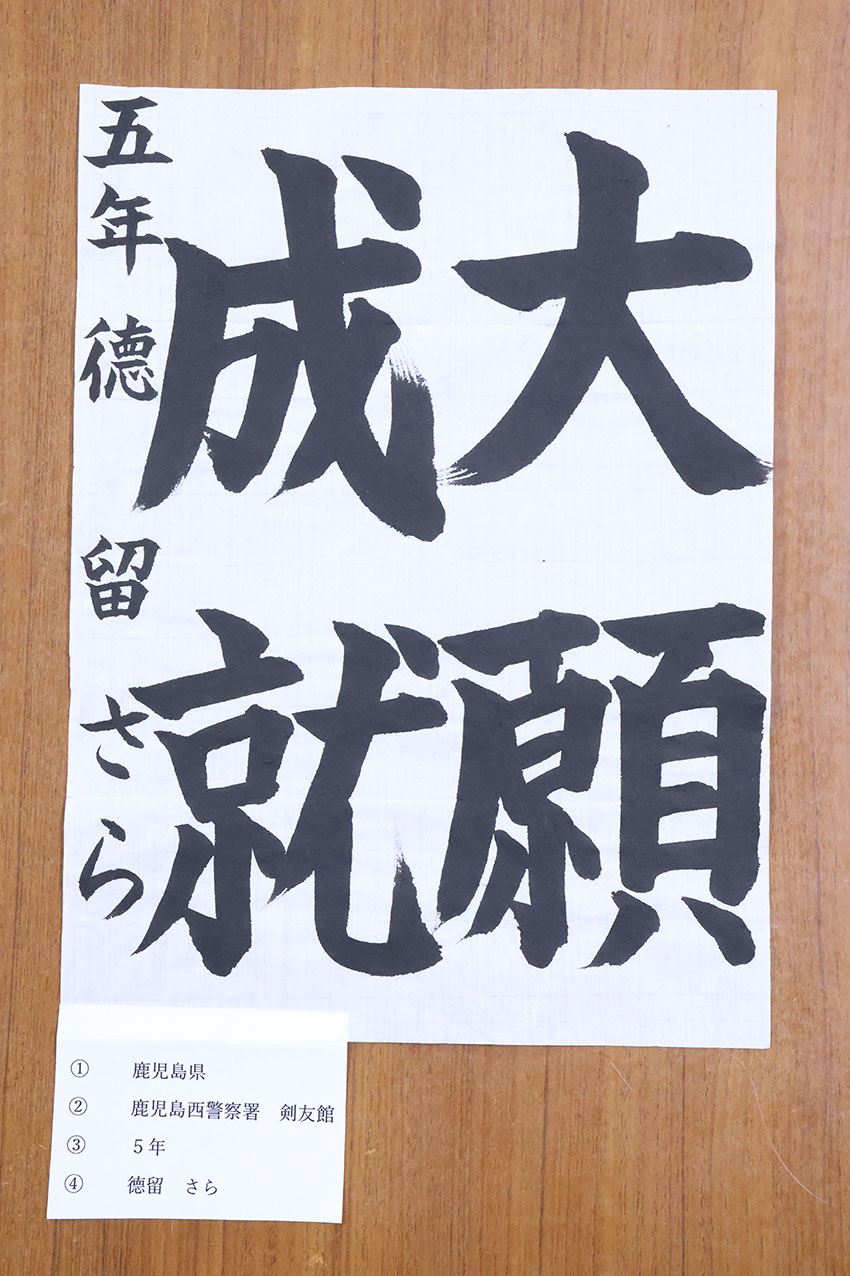 大願
成就
五年 德留さら
① 鹿児島県
② 鹿児島西警察署 剣友館
③ 5年
④ 德留 さら